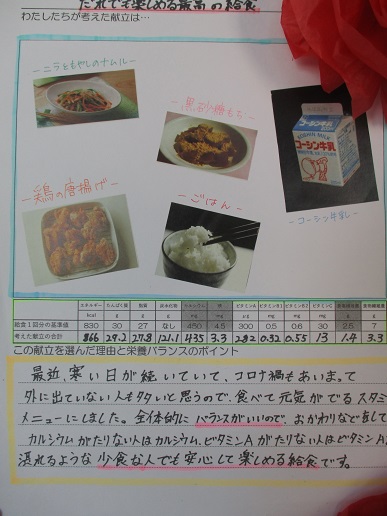 だれでも楽しめる最高の給食
わたしたちが考えた献立は…
ーニラともやしのナムルー
ー黒砂糖もちー
コーシン牛乳
ー鶏の唐揚げー
ーごはんー
ーコーシン牛乳ー
エネルギー たんぱく質 脂質 炭水化物 カルシウム 鉄 ビタミンA ビタミンB1 ビタミンB2 ビタミンC 食塩相当量 食物繊維
kcal g g g mg mg mg mg mg g g
給食1回分の基準値 830 30 27 なし 450 4.5 300 0.5 0.6 30 2.5 7
考えた献立の合計 866 29.2 27.8 121.1 435 3.3 282 0.32 0.55 13 1.4 3.3
この献立を選んだ理由と栄養バランスのポイント
最近、寒い日が続いていて、コロナ禍もあいまって
外に出ていない人も多いと思うので、食べて元気がでるスタミ
メニューにしました。全体的にバランスがいいので、おかわりなどをして
カルシウムがたりない人はカルシウム、ビタミンAがたりない人はビタミンA
摂れるような少食な人でも安心して楽しめる給食です。